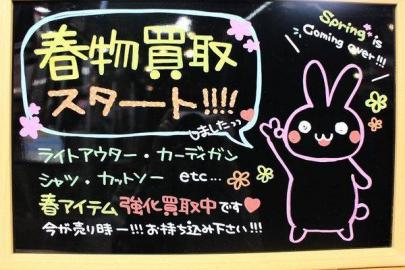 春物買取
スタート!!!!
しましたっっ
Spring is
Coming over!!!
ライトアウター・カーディガン
シャツ・カットソー etc...
春アイテム強化買取中です
今が売り時ー!!!お持ち込み下さい!!!